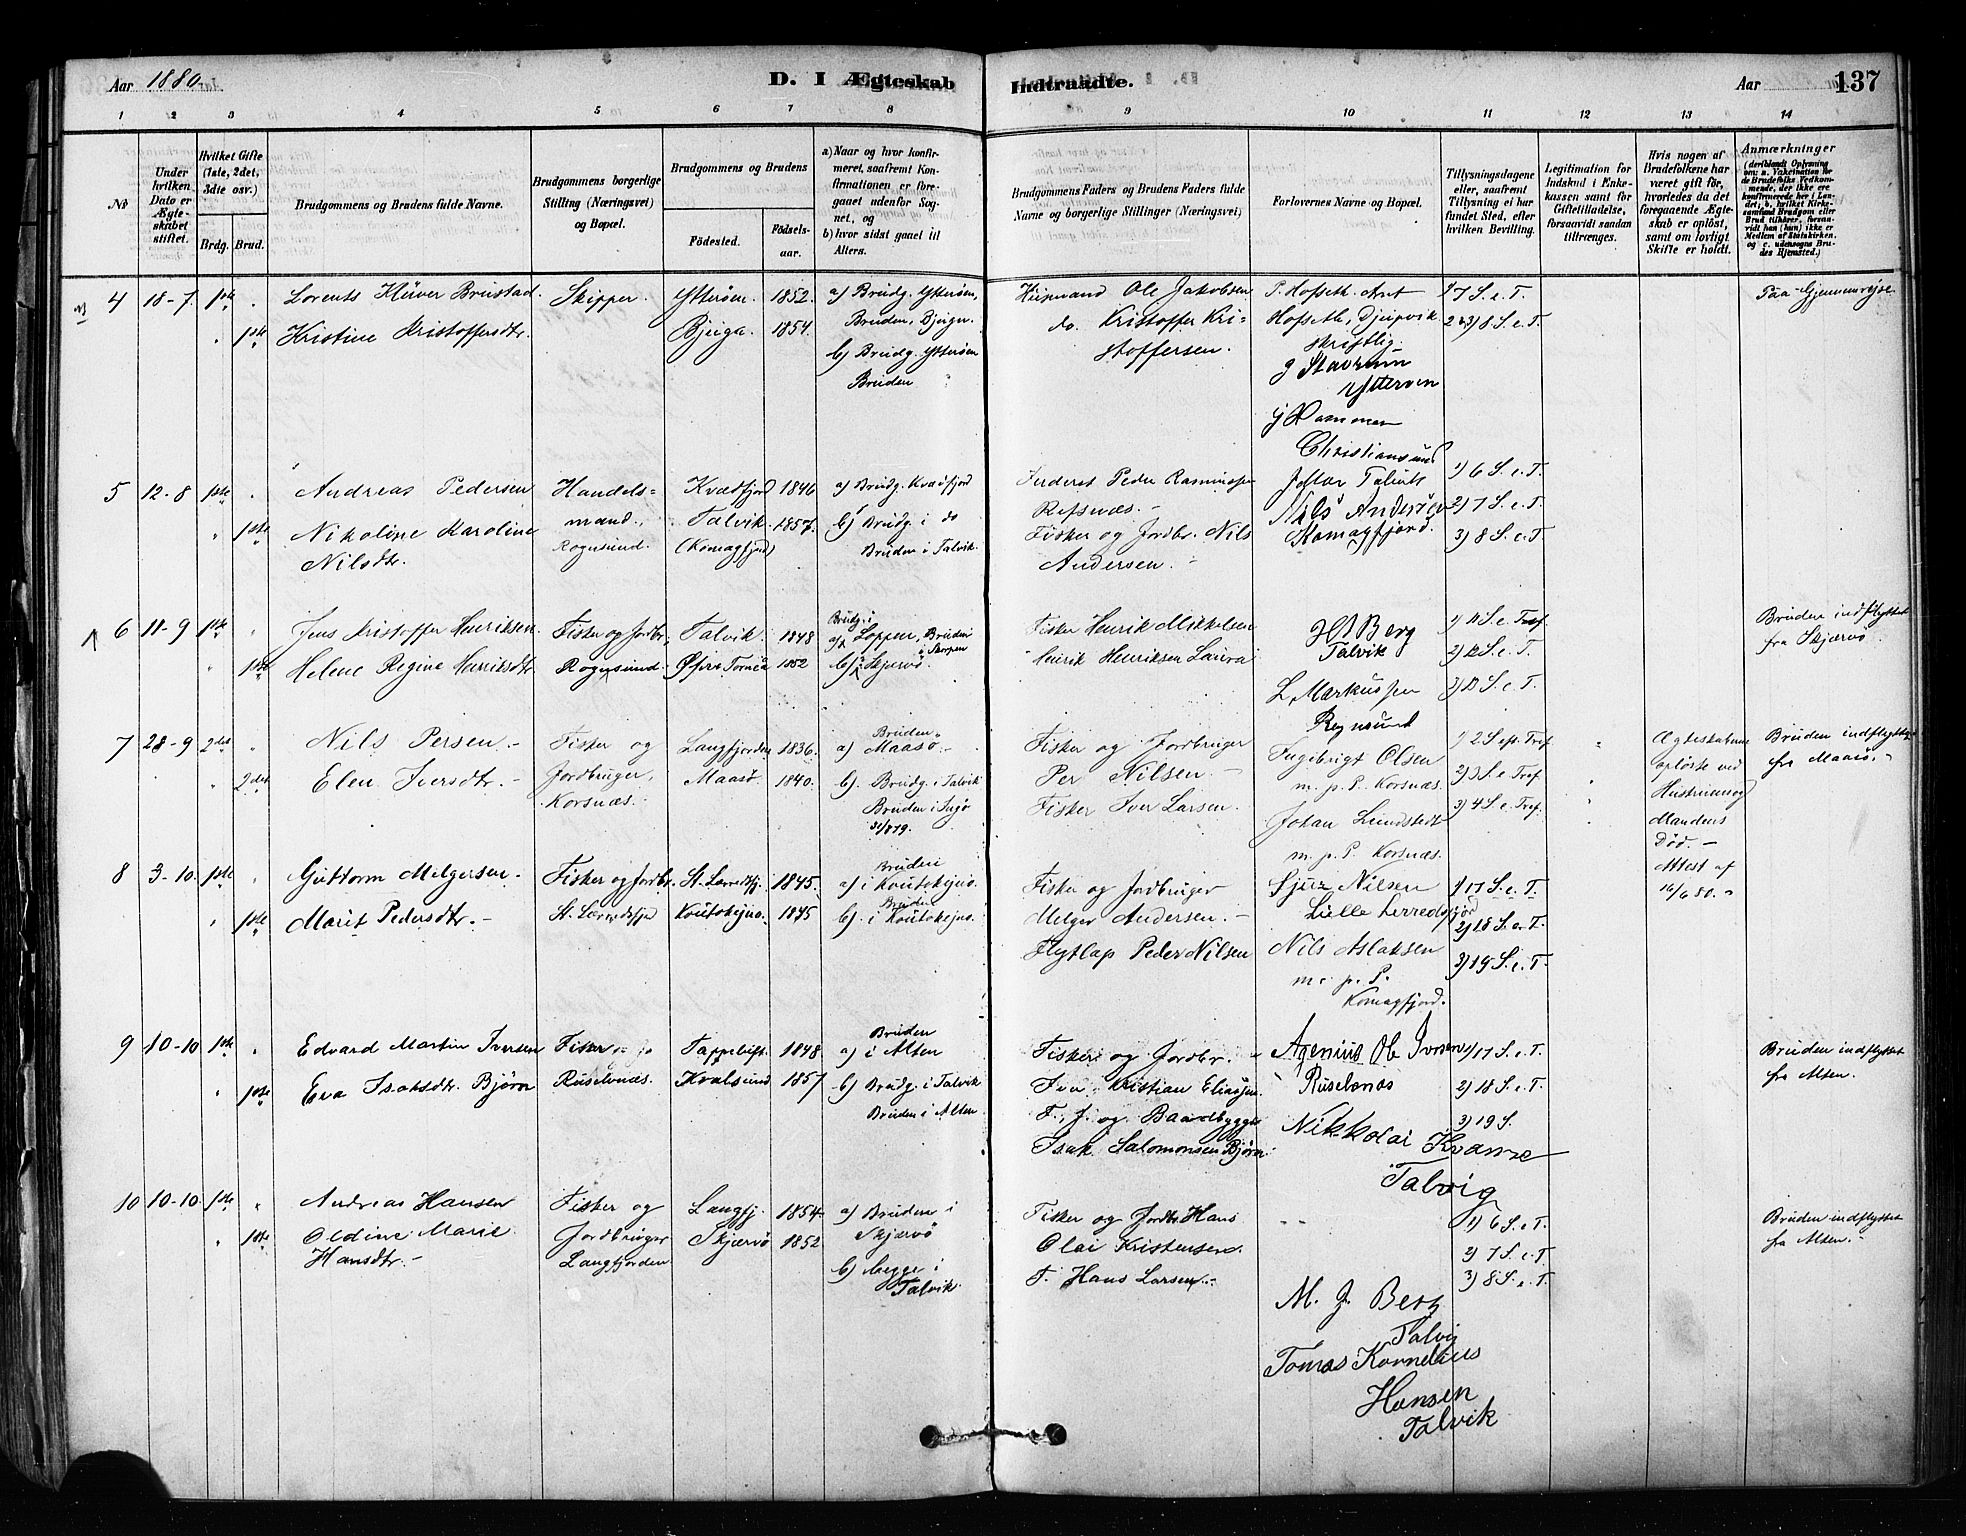 Aar 1880.
D. I Ægteskab
Indtraadte.
Aar
137
1 2 3 4 5 6 7 8 9 10 11 12 13 14
No
Under hvilken Dato er Ægteskabet stiftet.
Hvilket Gifte (1ste, 2det, 3die osv.)
Brdg. Brud.
Brudgommens og Brudens fulde Navne.
Brudgommens borgerlige Stilling (Næringsvei) og Bopæl.
Brudgommens og Brudens
Fødested.
Fødselsaar.
a) Naar og hvor konfirmeret, saafremt Konfirmationen er foregaaet udenfor Sognet, og
b) hvor sidst gaaet til Alters.
Brudgommens Faders og Brudens Faders fulde Navne og borgerlige Stillinger (Næringsvei)
Forlovernes Navne og Bopæl.
Tillysningsdagene eller, saafremt Tillysning ei har fundet Sted, efter hvilken Bevilling.
Legitimation for Indskud i Enkekassen samt for Giftetilladelse, forsaavidt saadan tiltrænges.
Hvis nogen af Brudefolkene har været gift før, hvorledes da det foregaaende Ægteskab er opløst, samt om lovligt Skifte er holdt.
Anmærkninger (deriblandt Oplysning om: a. Vakcination for de Brudefolks Vedkommende, der ikke ere konfirmerede her i Landet; b. hvilket Kirkesamfund Brudgom eller Brud tilhører, forsaavidt han (hun) ikke er Medlem af Statskirken, og c. udensogns Brudes Hjemsted.)
4 18-7 1ste " Lorents Hüver Brustad. Skipper. Ytterøen. 1852. a) Brudg. Ytterøen,
" 1ste Kristine Kristoffersdtr. Bjeign. 1854. Bruden, Bjeign.
b) Brudg. Ytterøen
Bruden "
Husmand Ole Jakobsen
do. Kristoffer Kri-
stoffersen.
P. Hofseth. Arnt
Hofseth, Djupvik
skriftlig.
Ytterøen
J Hammer
Christiansund
1) 7 S. e. T.
2 & 3) 8 S. e. T.
Paa Gjennemrejse
5 12-8 1ste " Andreas Pedersen Handels= Kvædfjord 1846 a) Brudg. Kvædfjord
" 1ste Nikoline Karoline mand., Talvik. 1857. b) Brudg. i do
Nilsdtr. Rognsund. (Komagfjord) Bruden i Talvik.
Peder Rasmussen
Refsnæs. -
Fisker og Jordbr. Nils
Andersen. -
Talvik
Nils Andersen
Komagfjord.
1) 6 S. e. T.
2) 7 S. e. T.
3) 8 S. e. T.
6 11-9 1ste " Jens Kristoffer Henriksen. Fisker og Jordbr. Talvik. 1848 Brudg. i a) Loppen, Bruden i Skorpen
" 1ste Helene Regine Henriksdtr. Rognsund. Øfre Torneå 1852 b) Skjervø.
Fisker Henrik Mikkelsen
Henrik Henriksen
Berg
Talvik
L, Markussen
Rognsund
2) 12 S. e. T.
3) 13 S. e. T.
Bruden indflyttet
fra Skjærvø.
7 28-9 2det " Nils Persen. - Fisker og Langfjorden 1836. a) Bruden Maasø. -
" 2det Elen Iversdtr. - Jordbruger, Maasø. 1840. b) Brudg. i Talvik
Korsnæs. Bruden i Ingø
31/8 79.
Fisker og Jordbruger
Per Nilsen. -
Fisker Iver Larsen.
Ingebrigt Olsen
m. p. P. Korsnæs.
Johan Lundstedt
m. p. P. Korsnæs.
1) 2 S. ep. Tref.
2) 3 S. e. Tref.
3) 4 S. e. Tref.
Ægteskaberne
opløste ved
Hustruens og
Mandens
Død. -
Attest af
16/6 80. -
Bruden indflyttet
fra Maasø. -
8 3-10. 1ste " Guttorm Melgersen. - Fisker og Jordbr. St. Lerredsfj. 1845. a) Bruden i Koutokejno.
" 1ste Marit Pedersdtr. - St. Lerredsfjo Koutokejno. 1845 b) Bruden i Koutokejno.
Fisker og Jordbruger
Melger Andersen. -
Flytlap Peder Nilsen
Nilsen
Lille Lerredsfjord
Nils Aslaksen
m. p. P.
Komagfjord.
1) 17 S. e. T.
2) 18 S. e. T.
3) 19 S. e. T.
9 10-10 1ste " Edvard Martin Iversen Fisker og Jo Tappeluft. 1848. a) Bruden i Alten
" 1ste Eva Isaksdtr. Bjørn Ruselvnæs. Kvalsund 1857 b) Brudg. i Talvik
Bruden i Alten.
Fisker og Jordbr. -
Iver Kristian Eliassen.
F., J. og Baadbygger
Isak Salomonsen Bjørn.
Agenius Ole Iversen
Ruselvnæs
Nikkolai Kvænne
Talvig
1) 17 S. e. T.
2) 18 S. e. T.
3) 19 S.
Bruden indflyttet
fra Alten.
10 10-10. 1ste " Andreas Hansen Fisker og Langfj. 1854. a) Bruden i
" 1ste Oldine Marie Jordbruger Skjærvø 1852. Skjærvø
Hansdtr. - Langfjorden b) begge i
Talvik.
Fisker og Jordbr. Hans
Olai Kristensen.
F. Hans Larsen. -
M. J. Berg
Talvig
Tomas Kornelius
Hansen
Talvik
1) 6 S. e. T.
2) 7 S. e. T.
3) 8 S. e. T.
Bruden indflyttet
fra Alten. -